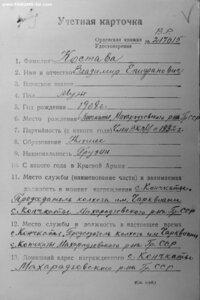 Учетная карточка
В.Р.
Орденская книжка №
Удостоверение 217015
1. Фамилия Костава
2. Имя и отчество Владимир Епифанович
3. Пол муж
4. Год рождения 1908 г.
5. Место рождения Махарадзевского р-на Гр.ССР
6. Партийность (с какого года) член ВКП(б) с 1932 г.
7. Образование Низшее
8. Национальность Грузин
9. С какого года в Красной Армии
11. Место службы (наименование части) и занимаемая
должность в момент награждения с. Кончкати
Председатель колхоза им. Чарквиани
с. Кончкати Махарадзевского р-на Гр.ССР
12. Место службы и должность в настоящее время
с. Кончкати, Председатель колхоза им. Чарквиани
с. Кончкати Махарадзевского р-на Гр.ССР
13. Домашний адрес награжденного с. Кончкати
Махарадзевский р-н Гр.ССР